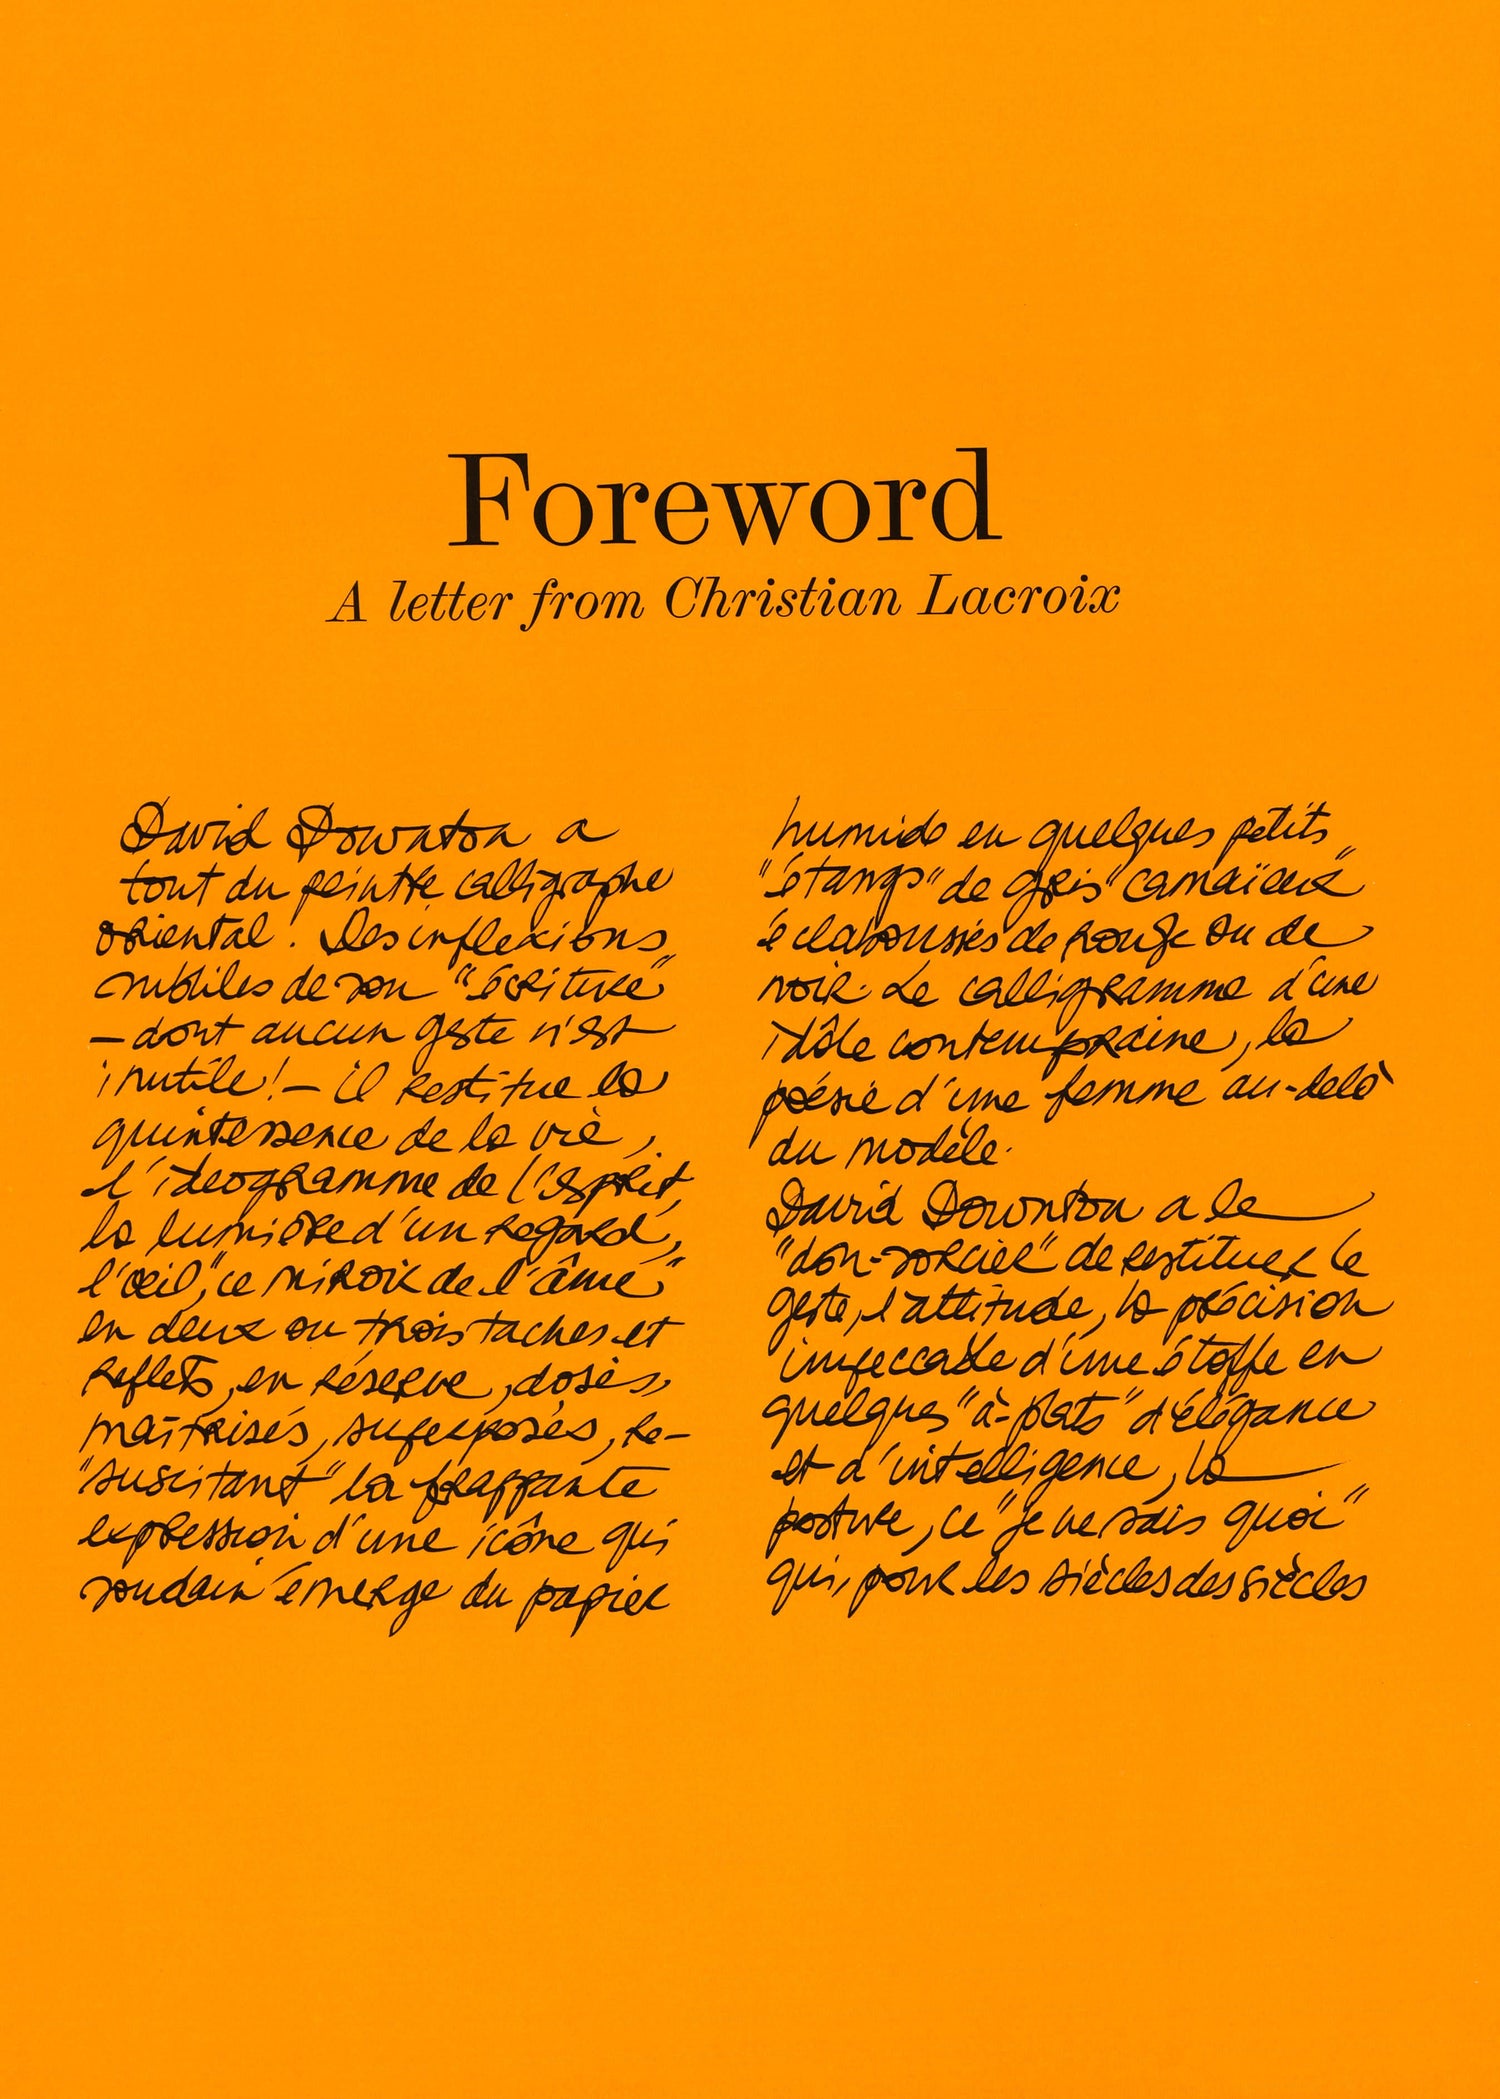 Foreword
A letter from Christian Lacroix
David Downton a
tout du peintre calligraphe
oriental! Des inflexions
subtiles de son "écriture"
— dont aucun geste n'est
inutile! — il restitue la
quintessence de la vie,
l'ideogramme de l'esprit,
la lumière d'un regard,
l'œil, "ce miroir de l'âme"
en deux ou trois taches et
reflets, en réserve, dosés,
maîtrisés, superposés, re-
"suscitant" la frappante
expression d'une icône qui
soudain émerge du papier
humide en quelques petits
"étangs" de gris "camaïeux"
éclaboussés de rouge ou de
noir. Le calligramme d'une
idôle contemporaine, la
poésie d'une femme au-delà
du modèle.
David Downton a le
"don-sorcier" de restituer le
geste, l'attitude, la précision
impeccable d'une étoffe en
quelques "à-plats" d'élégance
et d'intelligence, la
posture, ce "je ne sais quoi"
qui, pour les siècles des siècles